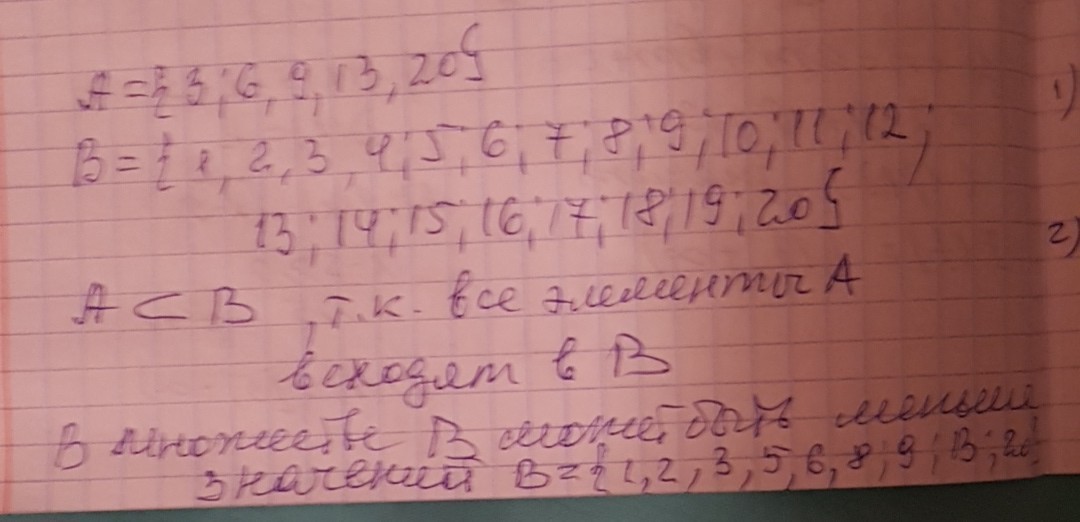 A={3;6,9,13,20}
B={1,2,3,4;5;6;7;8;9;10;11;12;
13;14;15;16;17;18;19;20}
A⊂B, т.к. все элементы A
всходят в B
В множестве B может быть меньше
значений B={1,2,3,5,6,8;9;13;20}
1)
2)